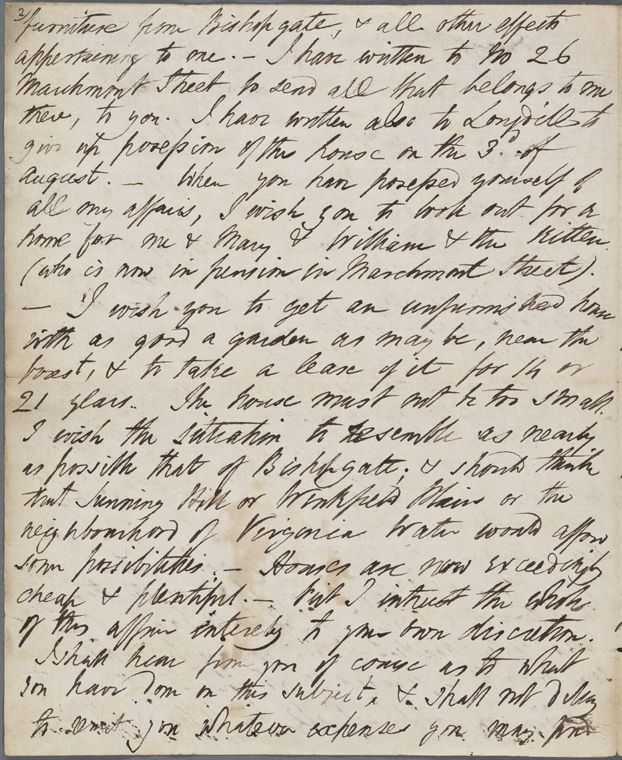 2/ furniture from Bishopgate, & all other effects
appertaining to me. — I have written to No 26
Marchmont Street to send all that belongs to me
there, to you. I have written also to Longdill to
give up possession of the house on the 3d. of
August. — When you have possessed yourself of
all my affairs, I wish you to look out for a
home for me & Mary & William & the kitten
(who is now in pension in Marchmont Street).
— I wish you to get an unfurnished house
with as good a garden as may be, near the
forest, & to take a lease of it for 14 or
21 years. The house must not be too small.
I wish the situation to resemble as nearly
as possible that of Bishopgate; & should think
that Sunning Hill or Winkfield Plain or the
neighbourhood of Virginia Water would afford
some possibilities. — Houses are now exceedingly
cheap & plentiful. — But I entrust the whole
of this affair entirely to your own discretion.
I shall hear from you of course as to what
you have done on this subject, & shall not delay
to remit you whatever expenses you may find